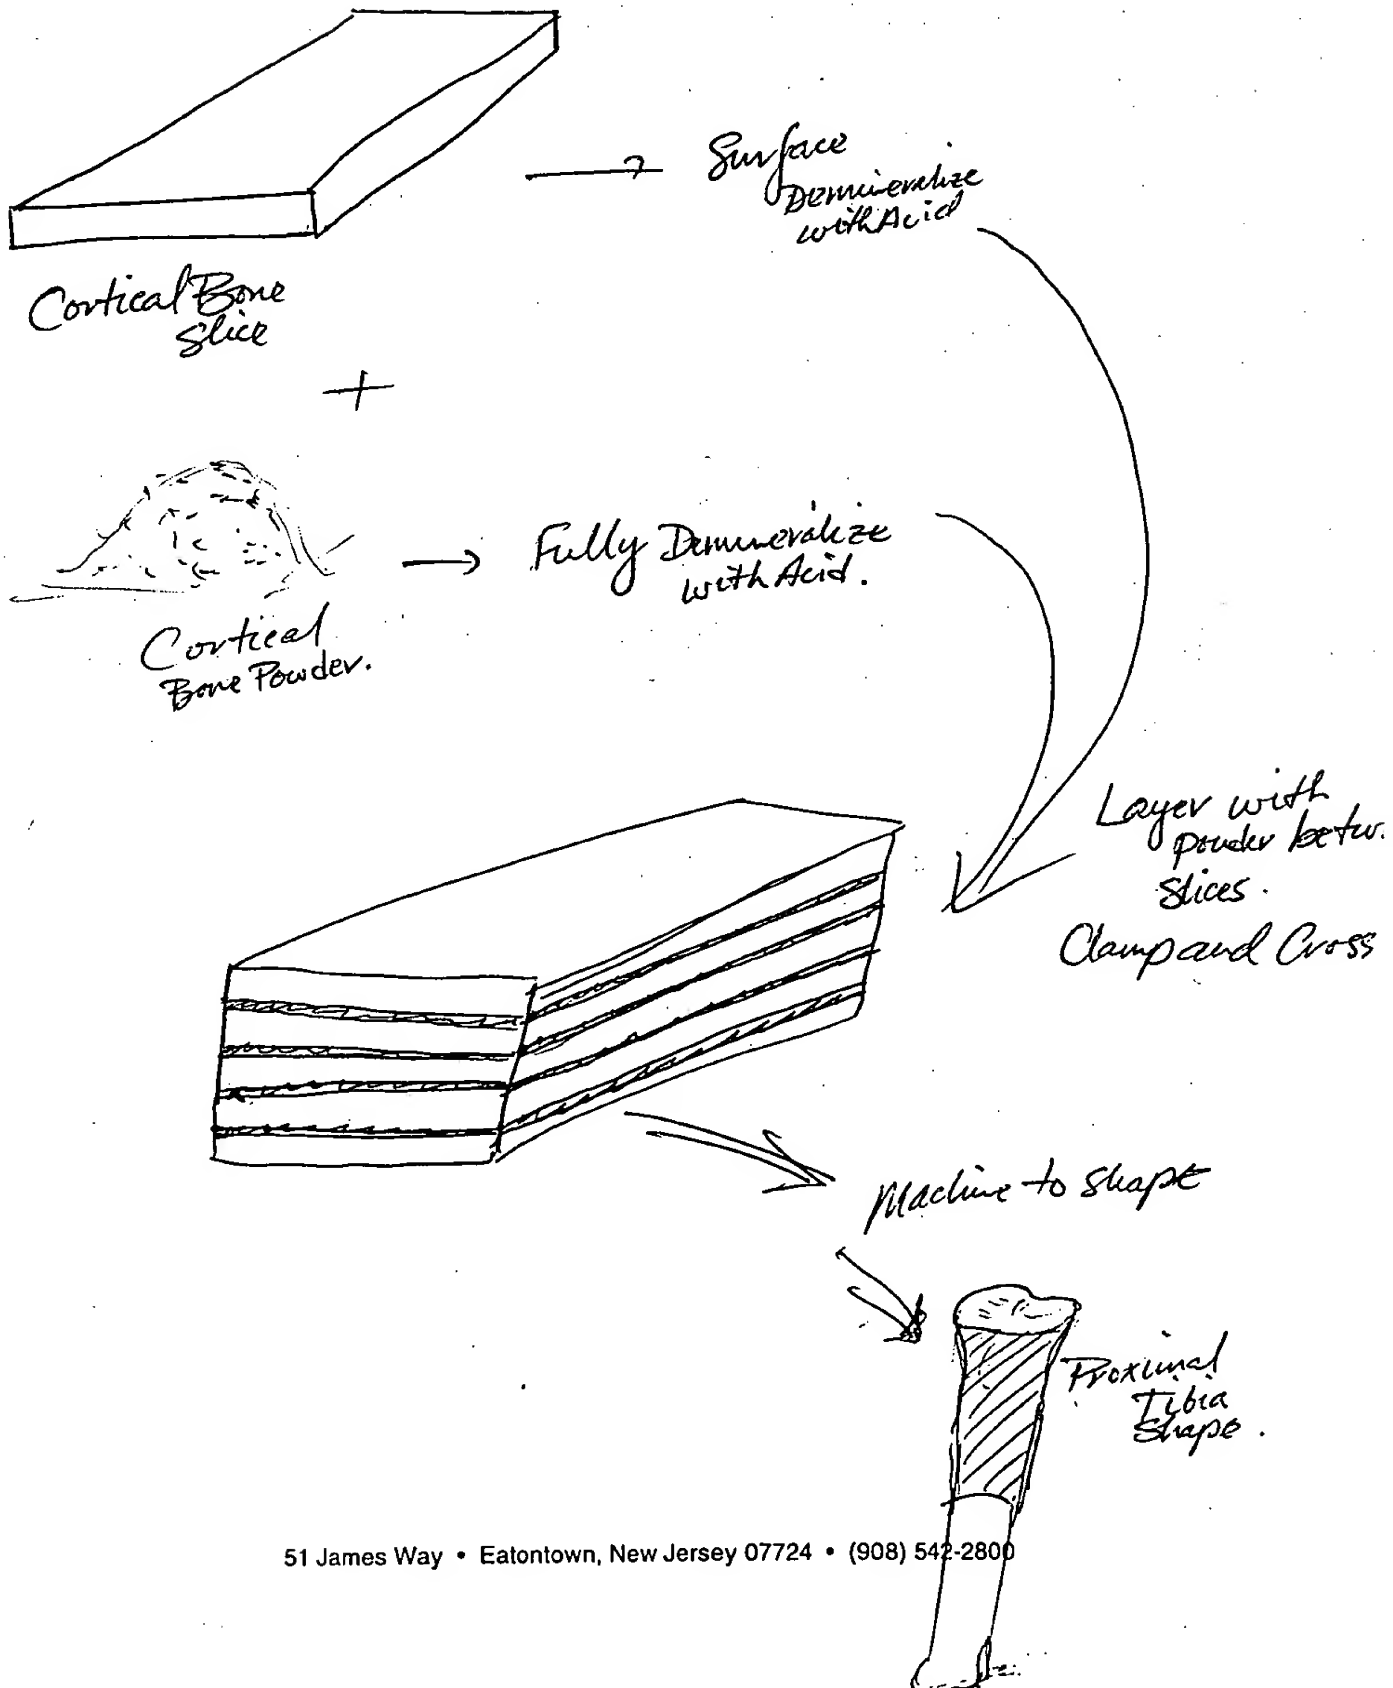 Surface
Demineralize
with Acid
Cortical Bone
Slice
+
Fully Demineralize
with Acid.
Cortical
Bone Powder.
Layer with
powder betw.
slices.
Clamp and Cross
Machine to shape
Proximal
Tibia
Shape.
51 James Way • Eatontown, New Jersey 07724 • (908) 542-2800